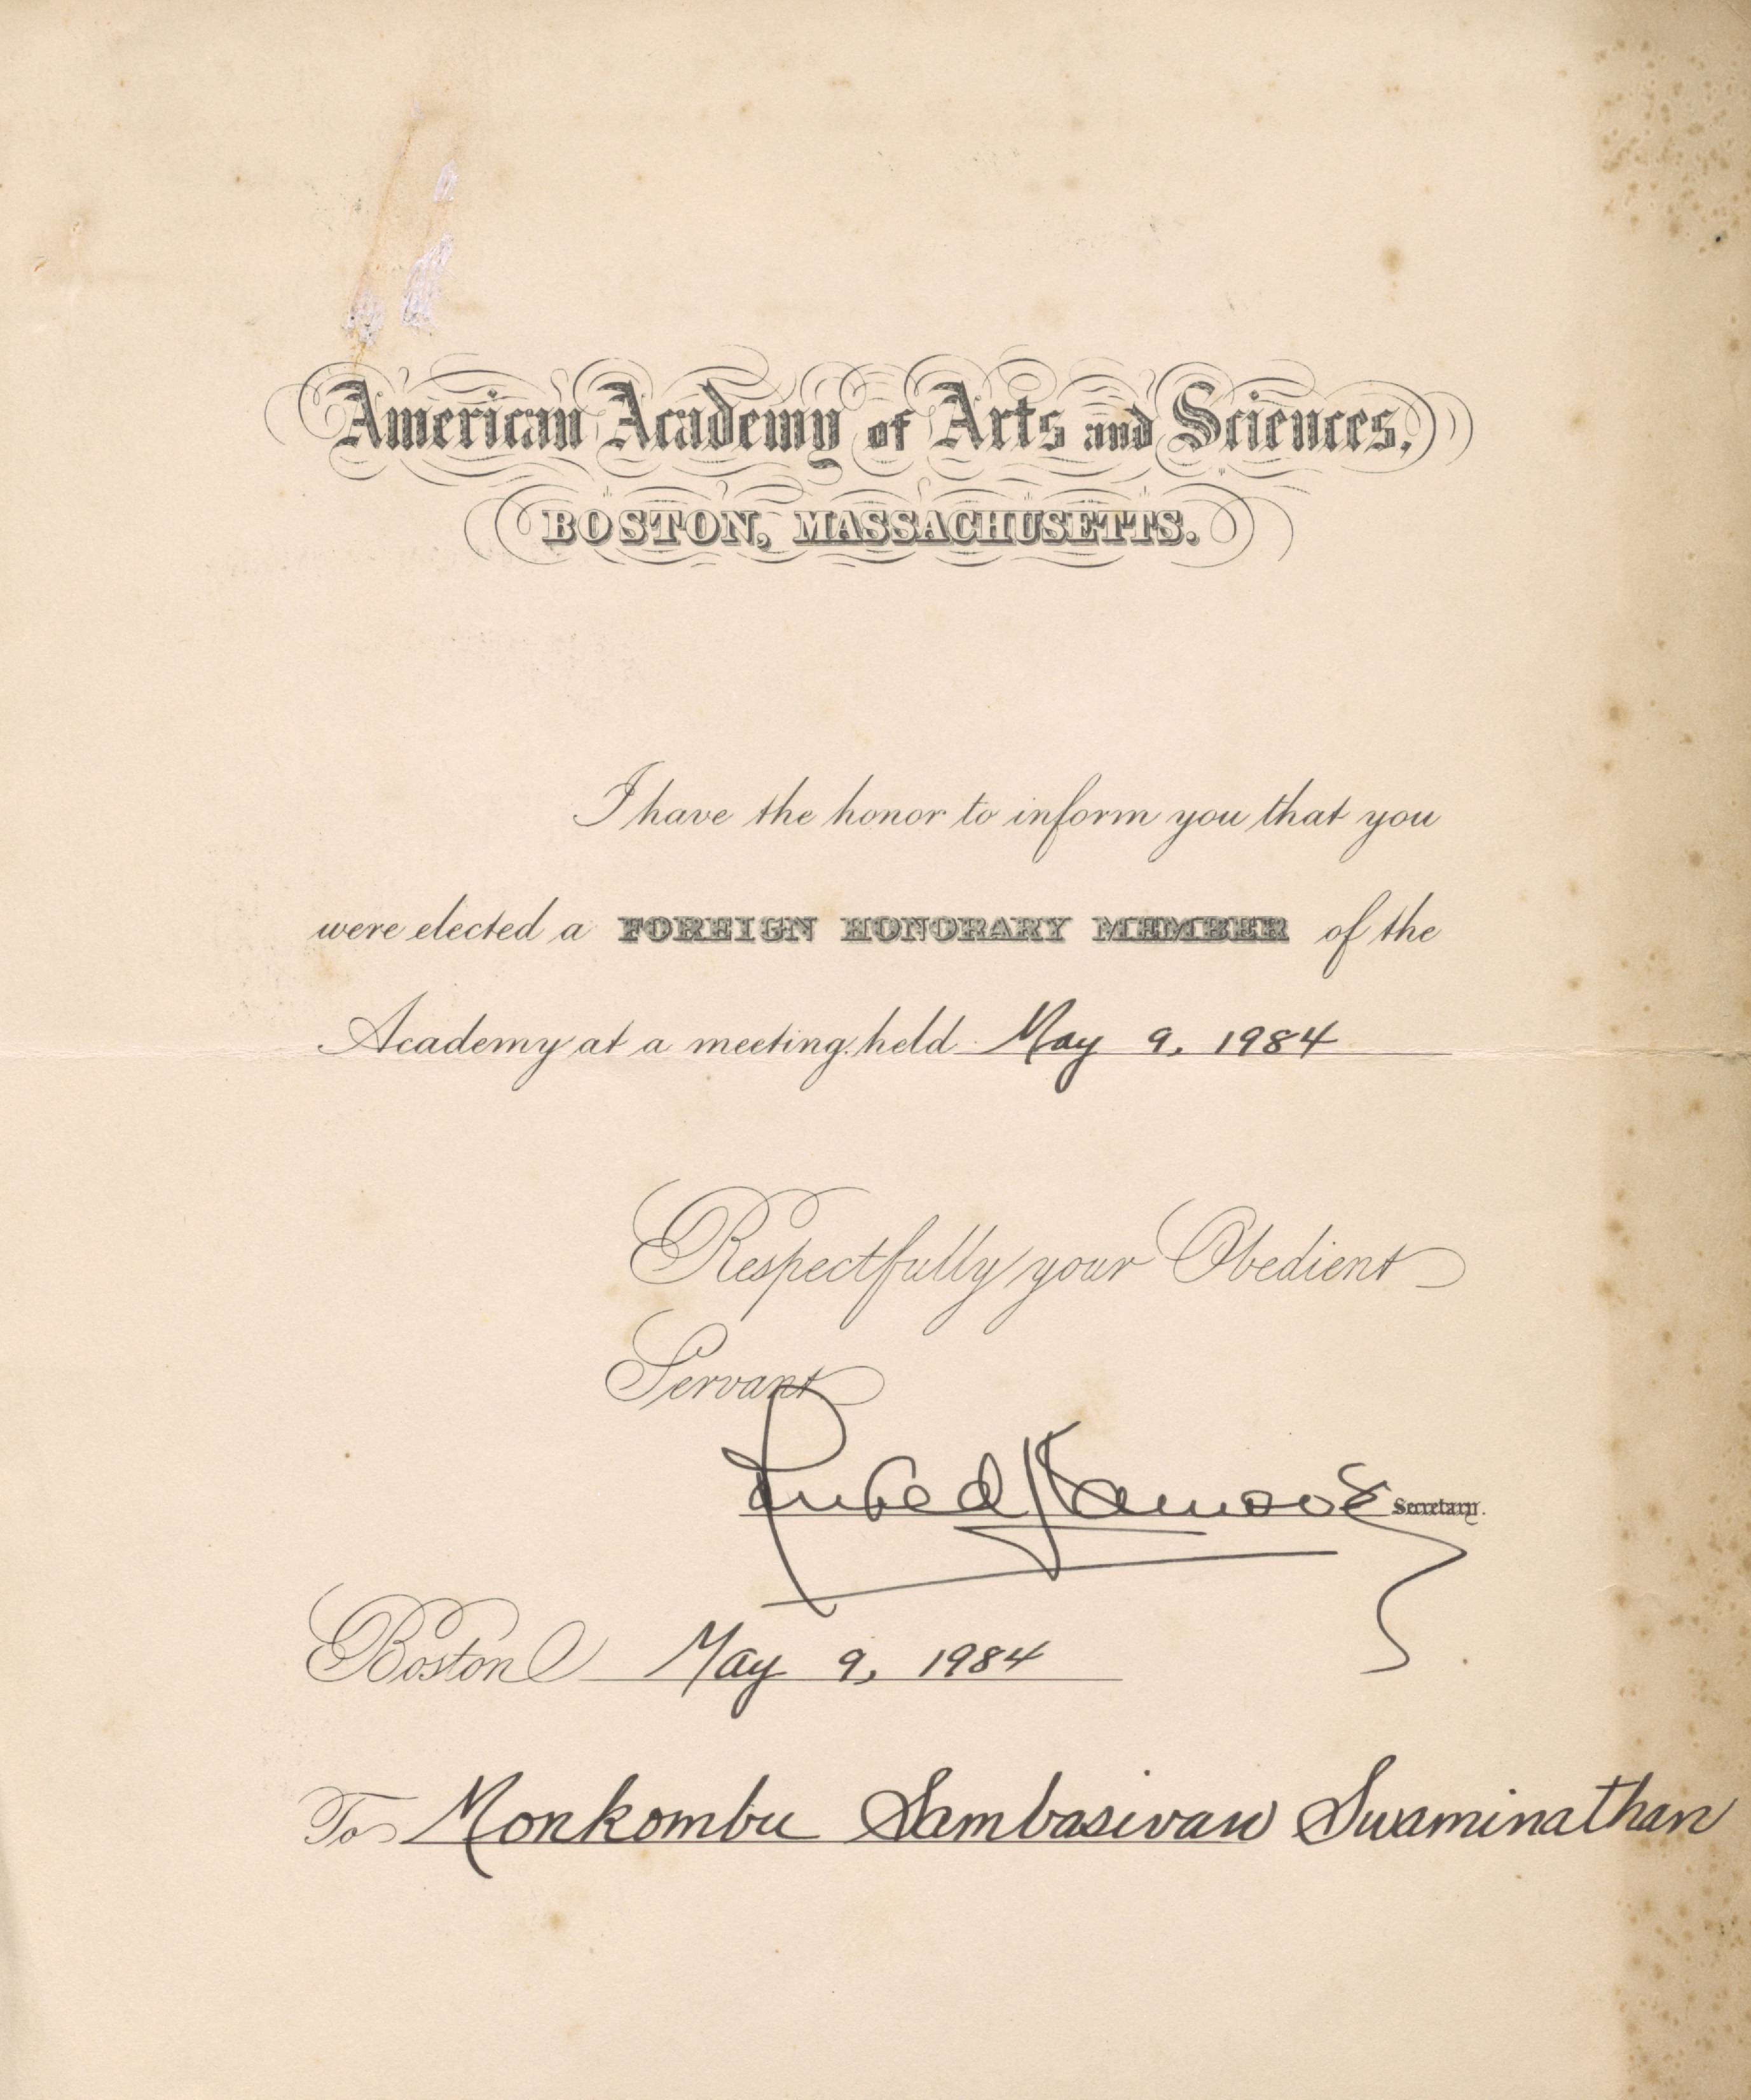 American Academy of Arts and Sciences,
BOSTON, MASSACHUSETTS.
I have the honor to inform you that you
were elected a FOREIGN HONORARY MEMBER of the
Academy at a meeting held May 9, 1984
Respectfully your Obedient
Servant
Secretary.
Boston May 9, 1984
To Monkombu Sambasivan Swaminathan